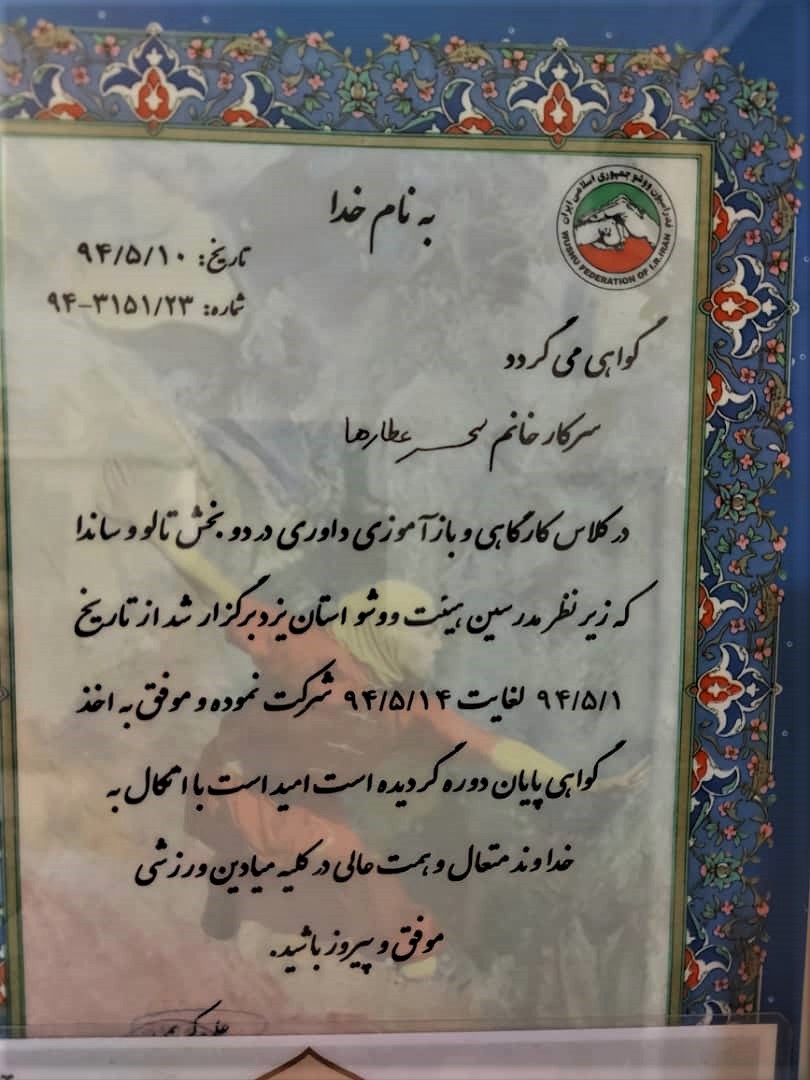 به نام خدا
فدراسیون ووشو جمهوری اسلامی ایران
WUSHU FEDERATION OF I.R.IRAN
تاریخ: ۹۴/۵/۱۰
شماره: ۹۴-۳۱۵۱/۲۳
گواهی می گردد
سرکار خانم سحر عطارها
در کلاس کارگاهی و باز آموزی داوری در دو بخش تالو و ساندا
که زیر نظر مدرسین هیئت ووشو استان یزد برگزار شد از تاریخ
۹۴/۵/۱ لغایت ۹۴/۵/۱۴ شرکت نموده و موفق به اخذ
گواهی پایان دوره گردیده است امید است با اتکال به
خداوند متعال و همت عالی در کلیه میادین ورزشی
موفق و پیروز باشید.